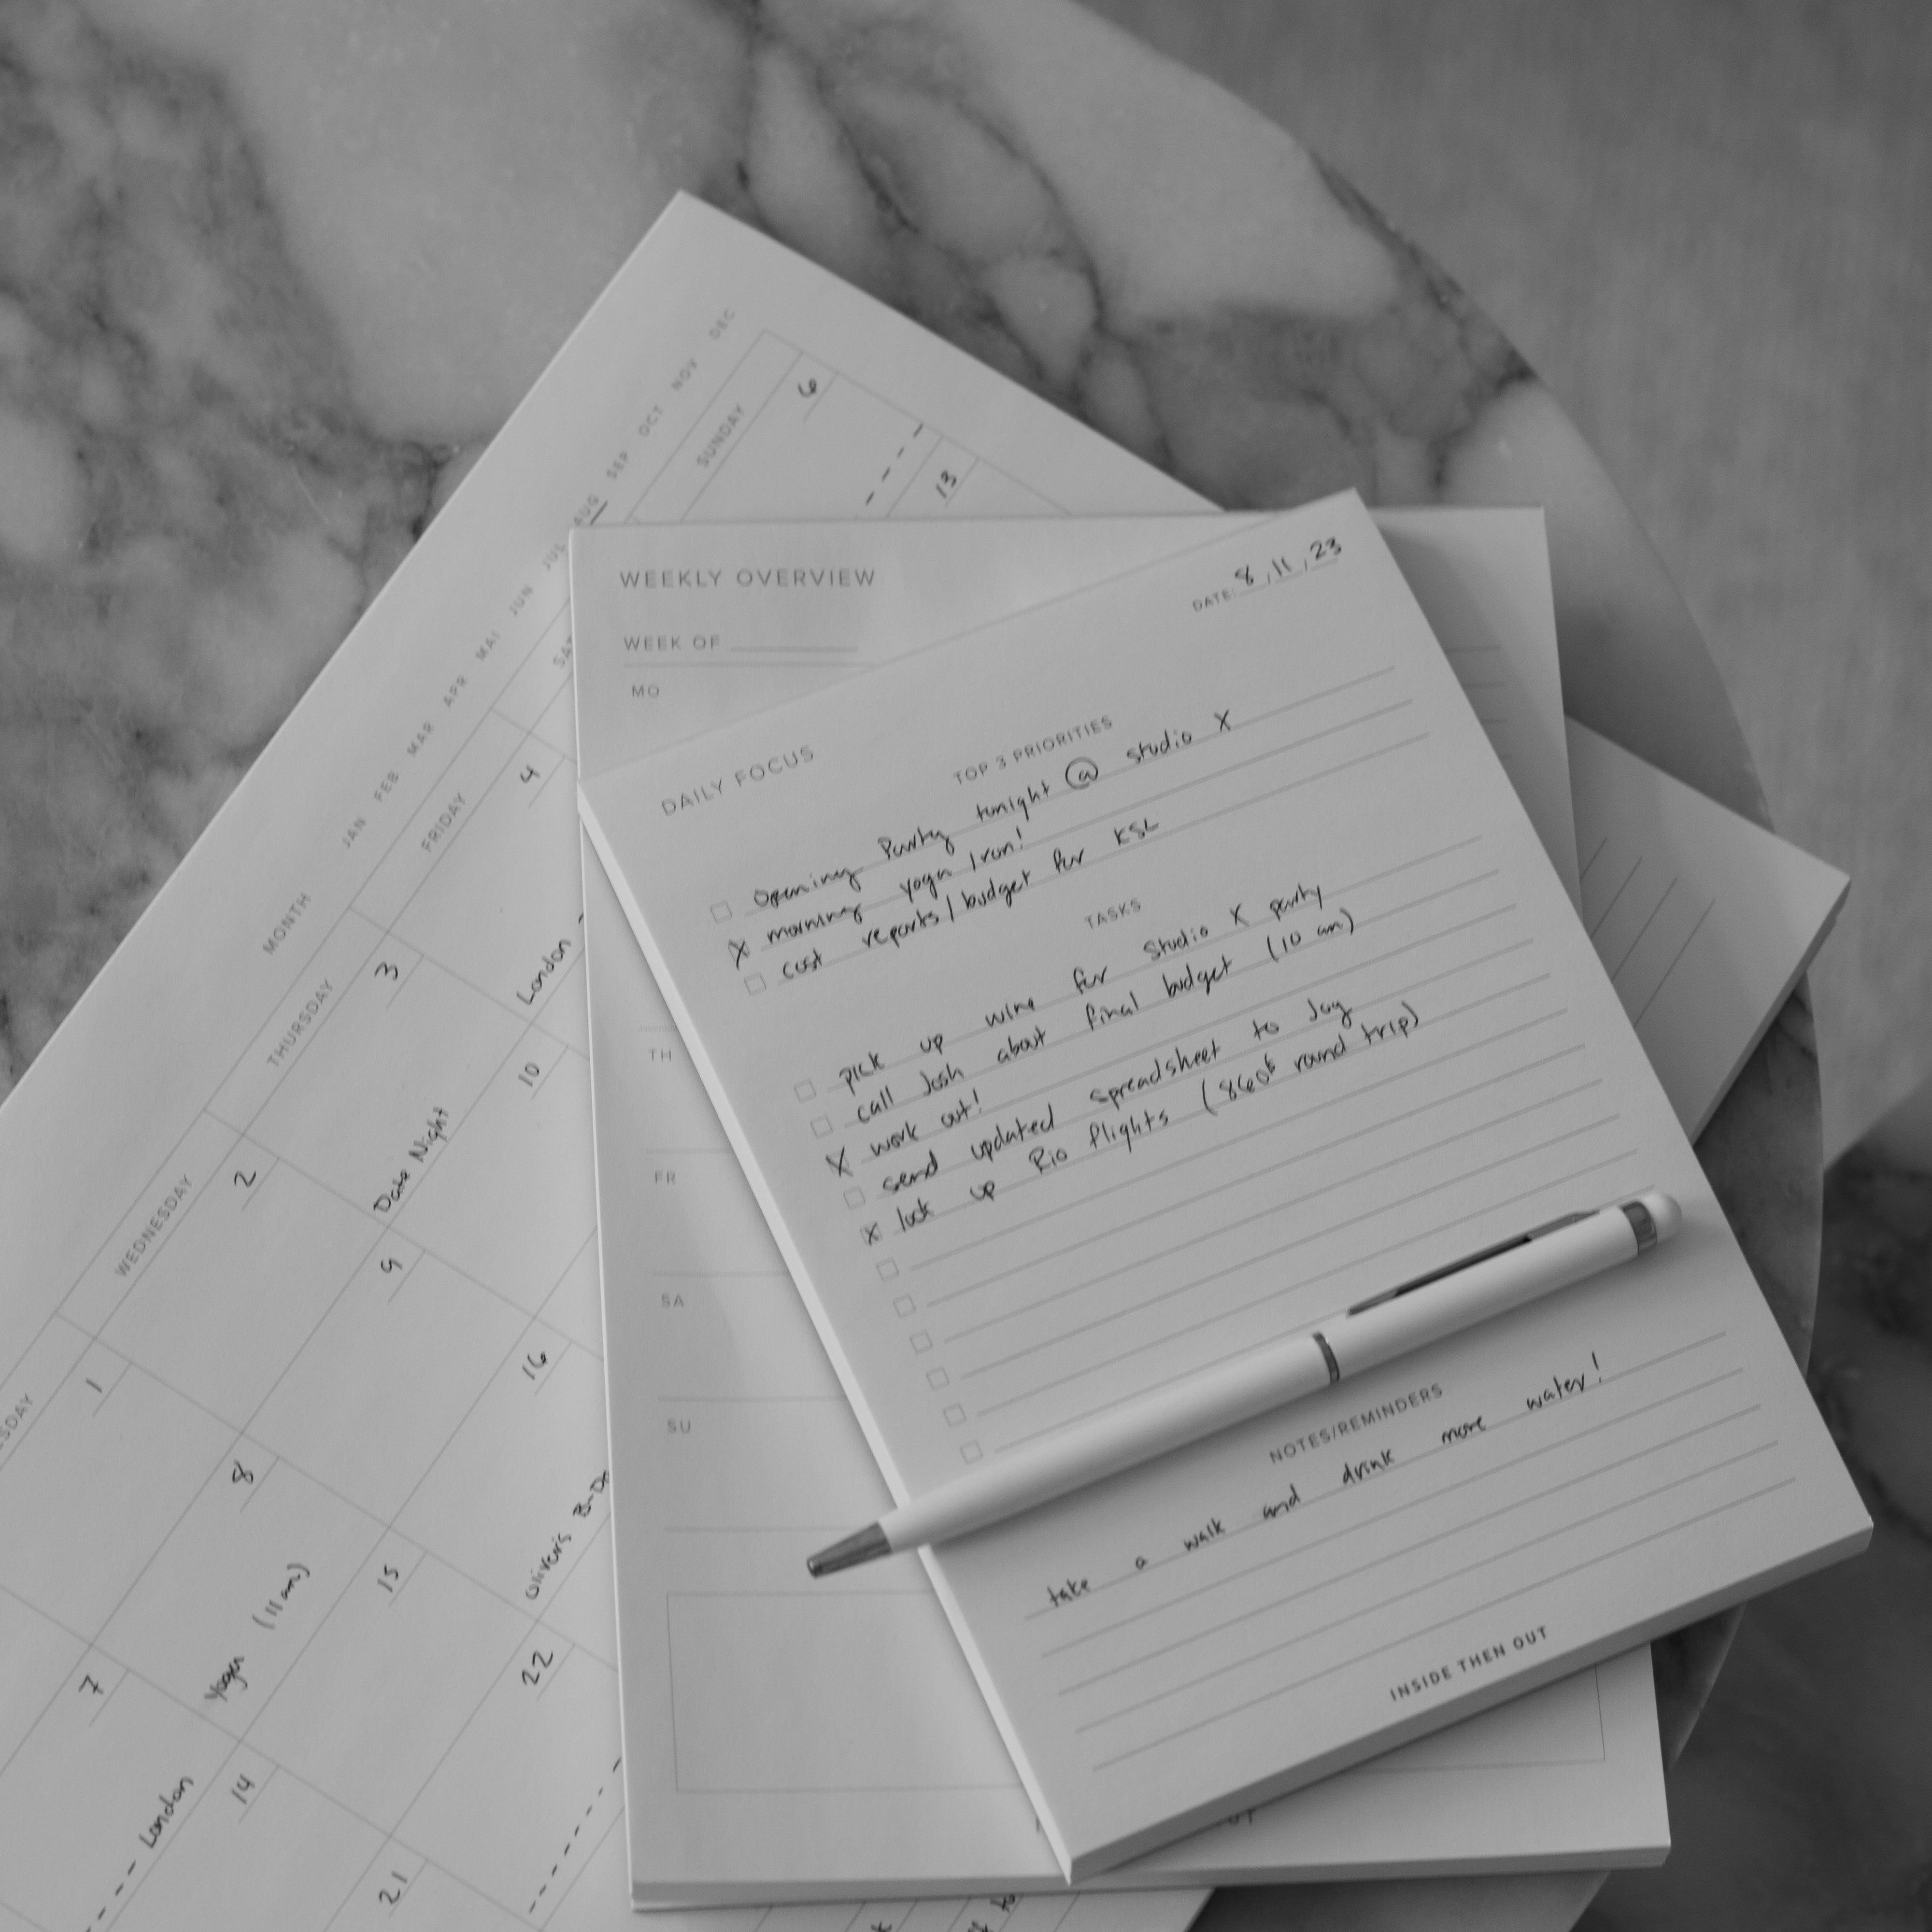 DAILY FOCUS
DATE: 8, 11, 23
TOP 3 PRIORITIES
opening party tonight @ studio X
X morning yoga / run!
cost reports / budget for KSL
TASKS
pick up wine for Studio X party
call Josh about final budget (10 am)
X work out!
send updated spreadsheet to Joy
X look up Rio flights (860€ round trip)
NOTES/REMINDERS
take a walk and drink more water!
INSIDE THEN OUT
WEEKLY OVERVIEW
WEEK OF
MO
TH
FR
SA
SU
MONTH
JAN FEB MAR APR MAI JUN JUL AUG SEP OCT NOV DEC
WEDNESDAY THURSDAY FRIDAY SAT SUNDAY
1 2 3 4 6
Date Night
London
7 8 9 10 13
London
Yoga (11 am)
14 15 16
Oliver's B-D
21 22